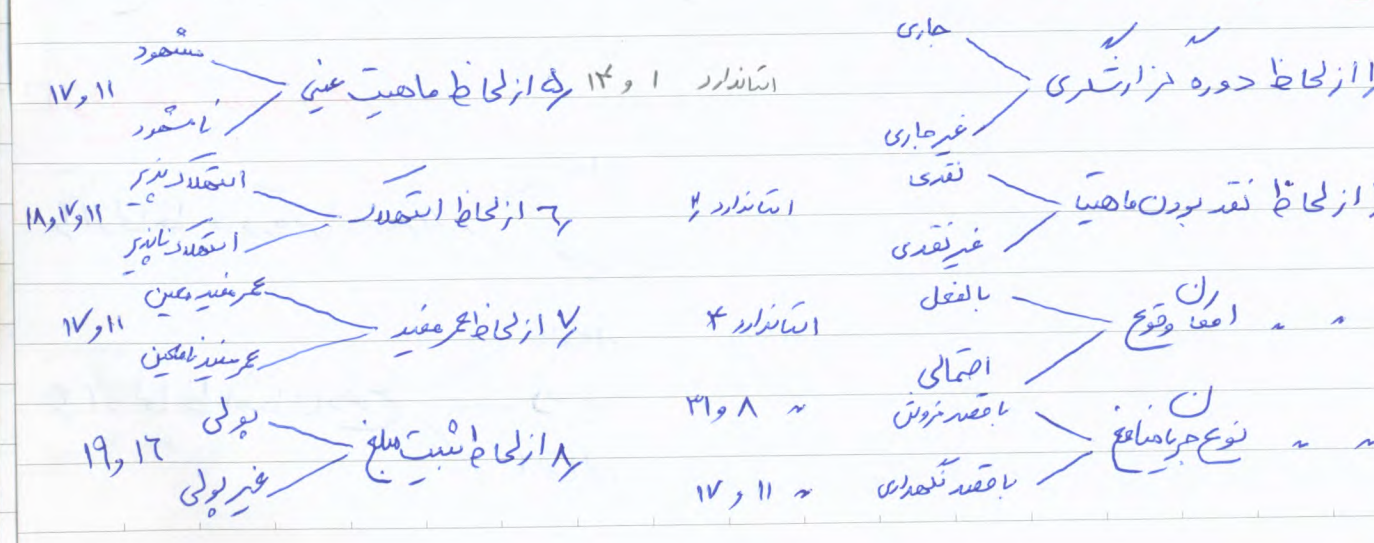 ۱ از لحاظ دوره گزارشگری
جاری
غیر جاری
استاندارد ۱ و ۱۴
از لحاظ نقد بودن ماهیت
نقدی
غیر نقدی
استاندارد ۲
" " امکان وقوع
بالفعل
احتمالی
استاندارد ۴
" " نوع جریان منافع
با قصد فروش
" ۸ و ۳۱
با قصد نگهداری
" ۱۱ و ۱۷
۵ از لحاظ ماهیت عینی
مشهود
نامشهود
۱۱ و ۱۷
۶ از لحاظ استهلاک
استهلاک پذیر
استهلاک ناپذیر
۱۱ و ۱۷ و ۱۸
۷ از لحاظ عمر مفید
عمر مفید معین
عمر مفید نامعین
۱۱ و ۱۷
۸ از لحاظ ثبت مبلغ
پولی
غیر پولی
۱۶ و ۱۹